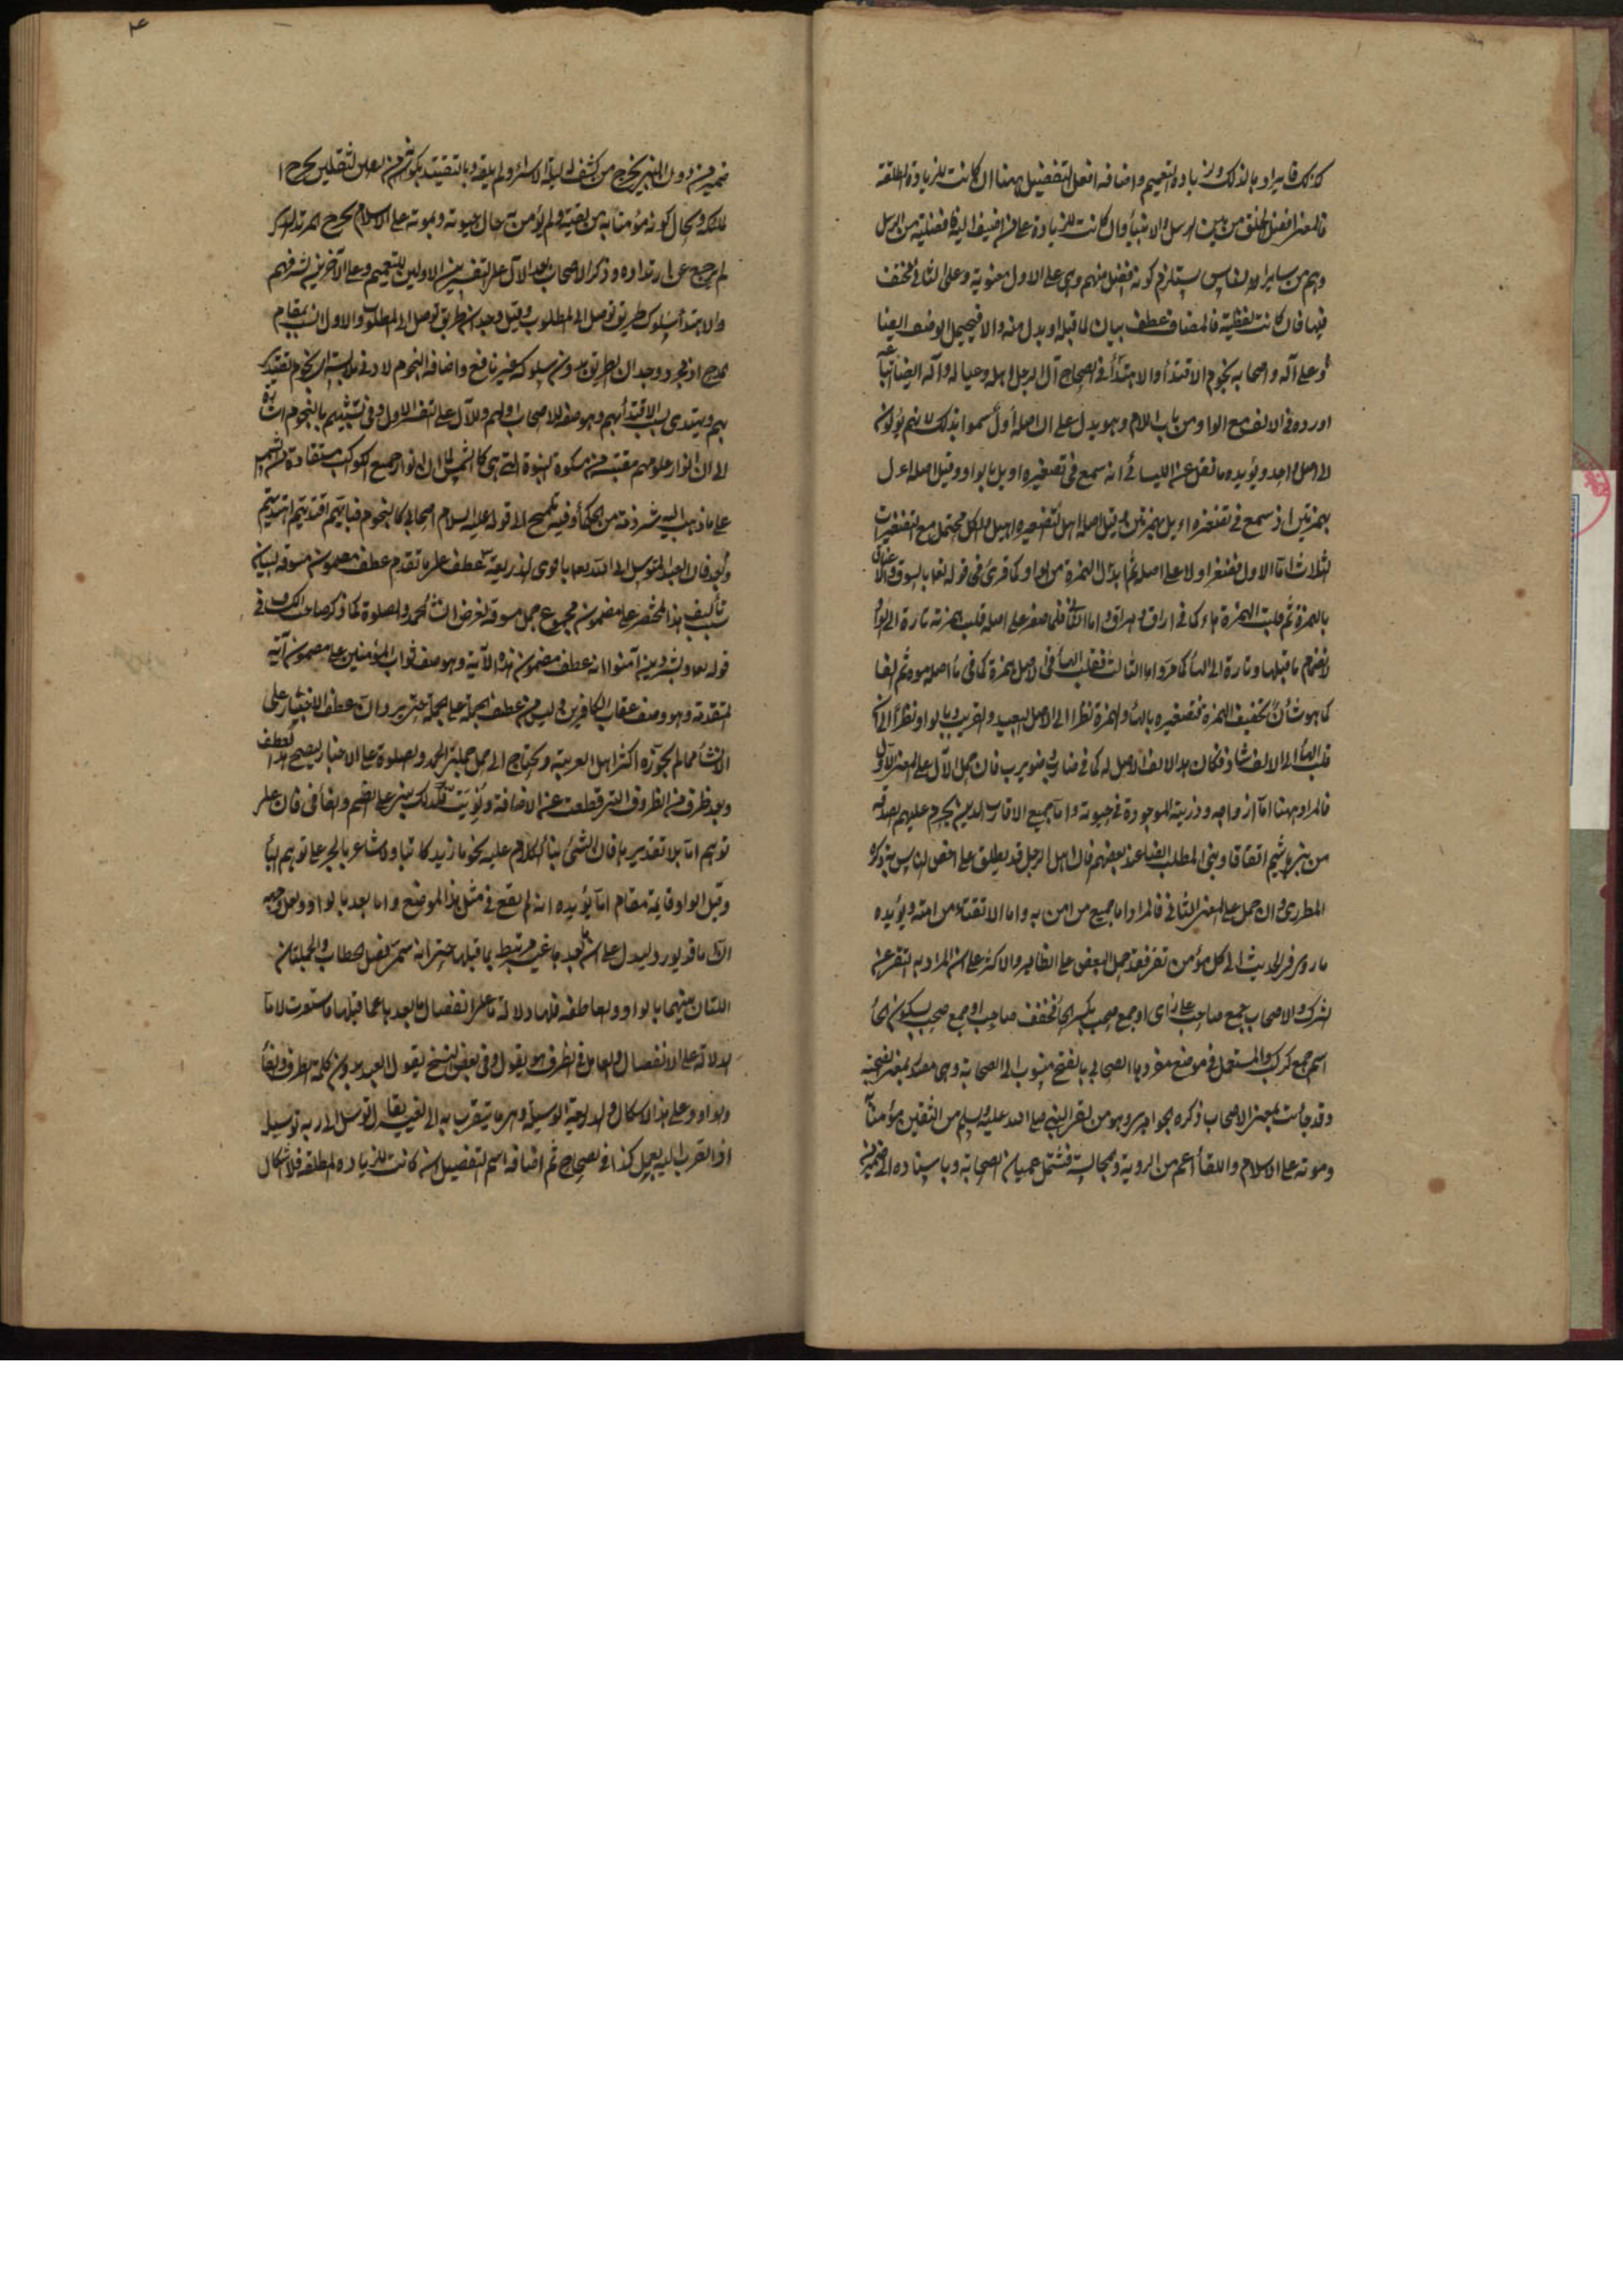 كذلك فايراد بالذلك وزيادة التعميم واضافة افعل التفضيل ههنا ان كانت للزيادة المطلقة
فالمعنى افضل الخلق من بين الرسل والانبيأ وان كانت للزيادة على من اضيف اليه فافضليته من الرسل
وهم من ساير الناس يستلزم كونه افضل منهم وهى على الاول معنوية وعلى الثانى
فيها فان كانت لفظية فالمضاف عطف بيان لما قبله او بدل منه والا فيحتمل الوصف ايضا
وعلى آله واصحابه نجوم الاقتدأ والاهتدأ فى الصحاح آل الرجل اهله وعياله وآله ايضا اتباعه
اورده فى الالف مع الواو من باب اللام وهو يدل على ان اصله أول سموا بذلك لانهم يؤلون
الى اصل واحد ويؤيده ما نقل عن الكسائى انه سمع فى تصغيره اويل بالواو وقيل اصله اءل
بهمزتين اذ سمع فى تصغيره اءيل بهمزتين وقيل اصله اهل لتصغيره اهيل والكل محتمل مع التصغيرات
الثلاث اما الاول فتصغر اولا على اصله ثم ابدال الهمزة من الواو كما قرئ فى قوله تعا بالسوق والاعناق
بالهمزة ثم قلبت الهمزة هاء كما فى اراق وهراق واما الثانى فلما صغر على اصله قلب همزته تارة الى الواو
لانضمام ما قبلها وتارة الى الهأ كما مر واما الثالث فقلب الهأ فى الاصل همزة كما فى مأ اصله موه ثم الفا
كما هو شأن تخفيف الهمزة فتصغيره بالهأ والهمزة نظرا الى الاصل البعيد والقريب وبالواو نظرا الى ان
قلب الهأ الى الالف شاذ فكان هذا الالف لا اصل له كما فى ضارب ضويرب فان حمل الآل على المعنى الاول
فالمراد ههنا اما ازواجه وذريته الموجودة فى حيوته واما جميع الاقارب الذين يحرم عليهم الصدقة
من بنى هاشم اتفاقا وبنى المطلب ايضا عند بعضهم فان اهل الرجل قد يطلق على اخص الناس به ذكره
المطرزى وان حمل على المعنى الثانى فالمراد اما جميع من امن به واما الاتقياء من امته ويؤيده
ما روى فى الحديث آلى كل مؤمن تقى فقد حمل البعض على الظاهر والاكثر على ان المراد به التقى عن
الشرك والاصحاب جمع صاحب على رأى او جمع صحب بكسر الحأ مخفف صاحب او جمع صحب بسكون الحأ
اسم جمع كركب والمستعمل فى موضع مفردها الصحابى بالفتح منسوب الى الصحابة وهى مصدر بمعنى الصحبة
وقد جأت بمعنى الاصحاب ذكره الجوهرى وهو من لقى النبى صلى الله عليه وسلم من الثقلين مؤمنا
وموته على الاسلام واللقأ اعم من الروية والمجالسة فشمل عميان الصحابة وباسناده الى ضمير من
ضمير من دون النبى يخرج من كشف له ليلة الاسراء ولم يلقه وبالتقييد بكونهم من الثقلين يخرج
الملك وبحال كونه مؤمنا به من لقيه ولم يؤمن به حال حيوته وبموته على الاسلام يخرج المرتد الذى
لم يرجع عن ارتداده وذكر الاصحاب بعد الآل على التفسيرين الاولين للتعميم وعلى الآخرين لشرفهم
والاهتدأ سلوك طريق توصل الى المطلوب وقيل وجدان طريق توصل الى المطلوب والاول انسب بمقام
المدح اذ مجرد وجدان الطريق بدون سلوكه غير نافع واضافة النجوم لادنى ملابسة اى نجوم يقتدى
بهم ويهتدى بسبب الاقتدأ بهم وهو صفة للاصحاب اولهم وللآل على التفسير الاول وفى تشبيههم بالنجوم اشارة
الى ان انوار علومهم مقتبسة من مشكوة النبوة التى هى كالشمس كما ان انوار جميع الكواكب مستفادة من الشمس
على ما ذهب اليه شرذمة من الحكمأ وفيه تلميح الى قوله عليه السلام اصحابى كالنجوم فبايهم اقتديتم اهتديتم
وبعد فان العبد المتوسل الى الله تعا باقوى الذريعة عطف على ما تقدم عطف مضمون مسوقة لبيان
سبب تأليف هذا المختصر على مضمون مجموع جمل مسوقة لغرض انشأ الحمد والصلوة كما ذكر صاحب الكشاف فى
قوله تعا وبشر الذين آمنوا انه عطف مضمون هذه الآية وهو وصف ثواب المؤمنين على مضمون آية
متقدمة وهو وصف عقاب الكافرين وليس من عطف الجملة على الجملة حتى يرد ان عطف الاخبار على
الانشأ مما لم يجوزه اكثر اهل العربية ويحتاج الى حمل جملتى الحمد والصلوة على الاخبار ليصح هذا العطف
وبعد ظرف من الظروف التى قطعت عن الاضافة ونويت فلذلك بنى على الضم والفأ فى فان على
توهم اما بلا تقدير ها فان الشئ بنأ الكلام عليه نحو ما زيد كاتبا ولا شاعر بالجر على توهم البأ
وقيل الواو قايمة مقام اما يؤيده انه لم يقع فى مثل هذا الموضع واما بعد بالواو ولعل وجهه
ان اما قد يورد ليدل على ان ما بعدها غير مرتبط بما قبلها حتى انه سمى فصل الخطاب والجملتان
اللتان بينهما بالواو والعاطفة فلها دلالة ما على انفصال ما بعدها عما قبلها فاستعيرت لاما
الدلالة على الانفصال والعامل فى الظرف هو يقول وفى بعض النسخ يقول العبد بدون كلمة الظرف والفأ
والواو وعلى هذا لا اشكال والذريعة الوسيلة وهى ما يتقرب به الى الغير يقال توسل الى ربه توسيلة
اذا تقرب اليه بعمل كذا فى الصحاح ثم اضافة اسم التفضيل ان كانت للزيادة المطلقة فلا اشكال